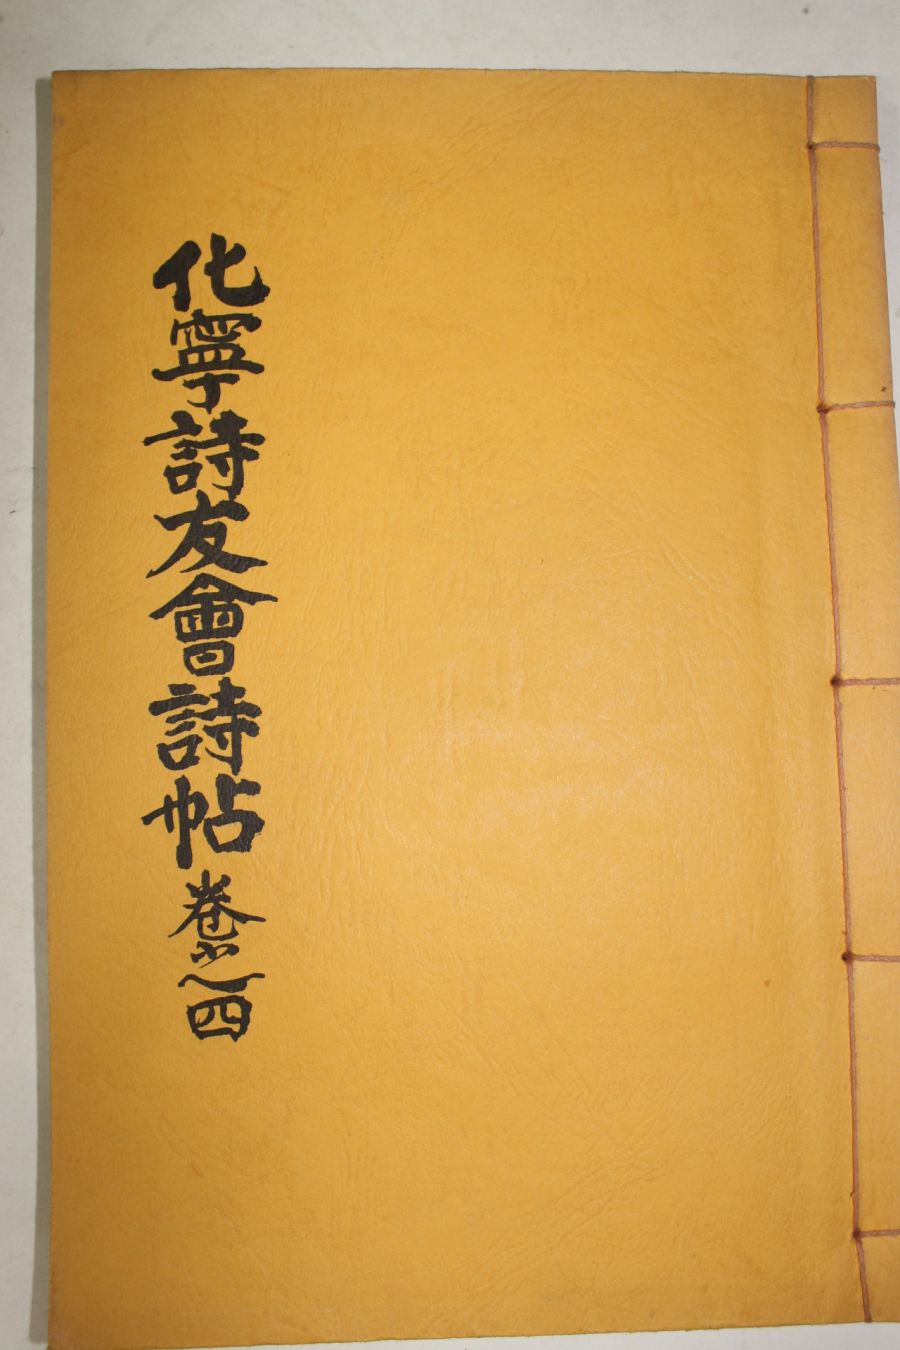 化寧詩友會詩帖卷之四